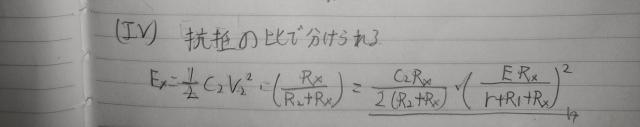 (IV) 抗抵の比で分けられる
Ex = 1/2 C2 V2^2 · (Rx/(R2+Rx)) = C2Rx/(2(R2+Rx)) · (E Rx/(r+R1+Rx))^2